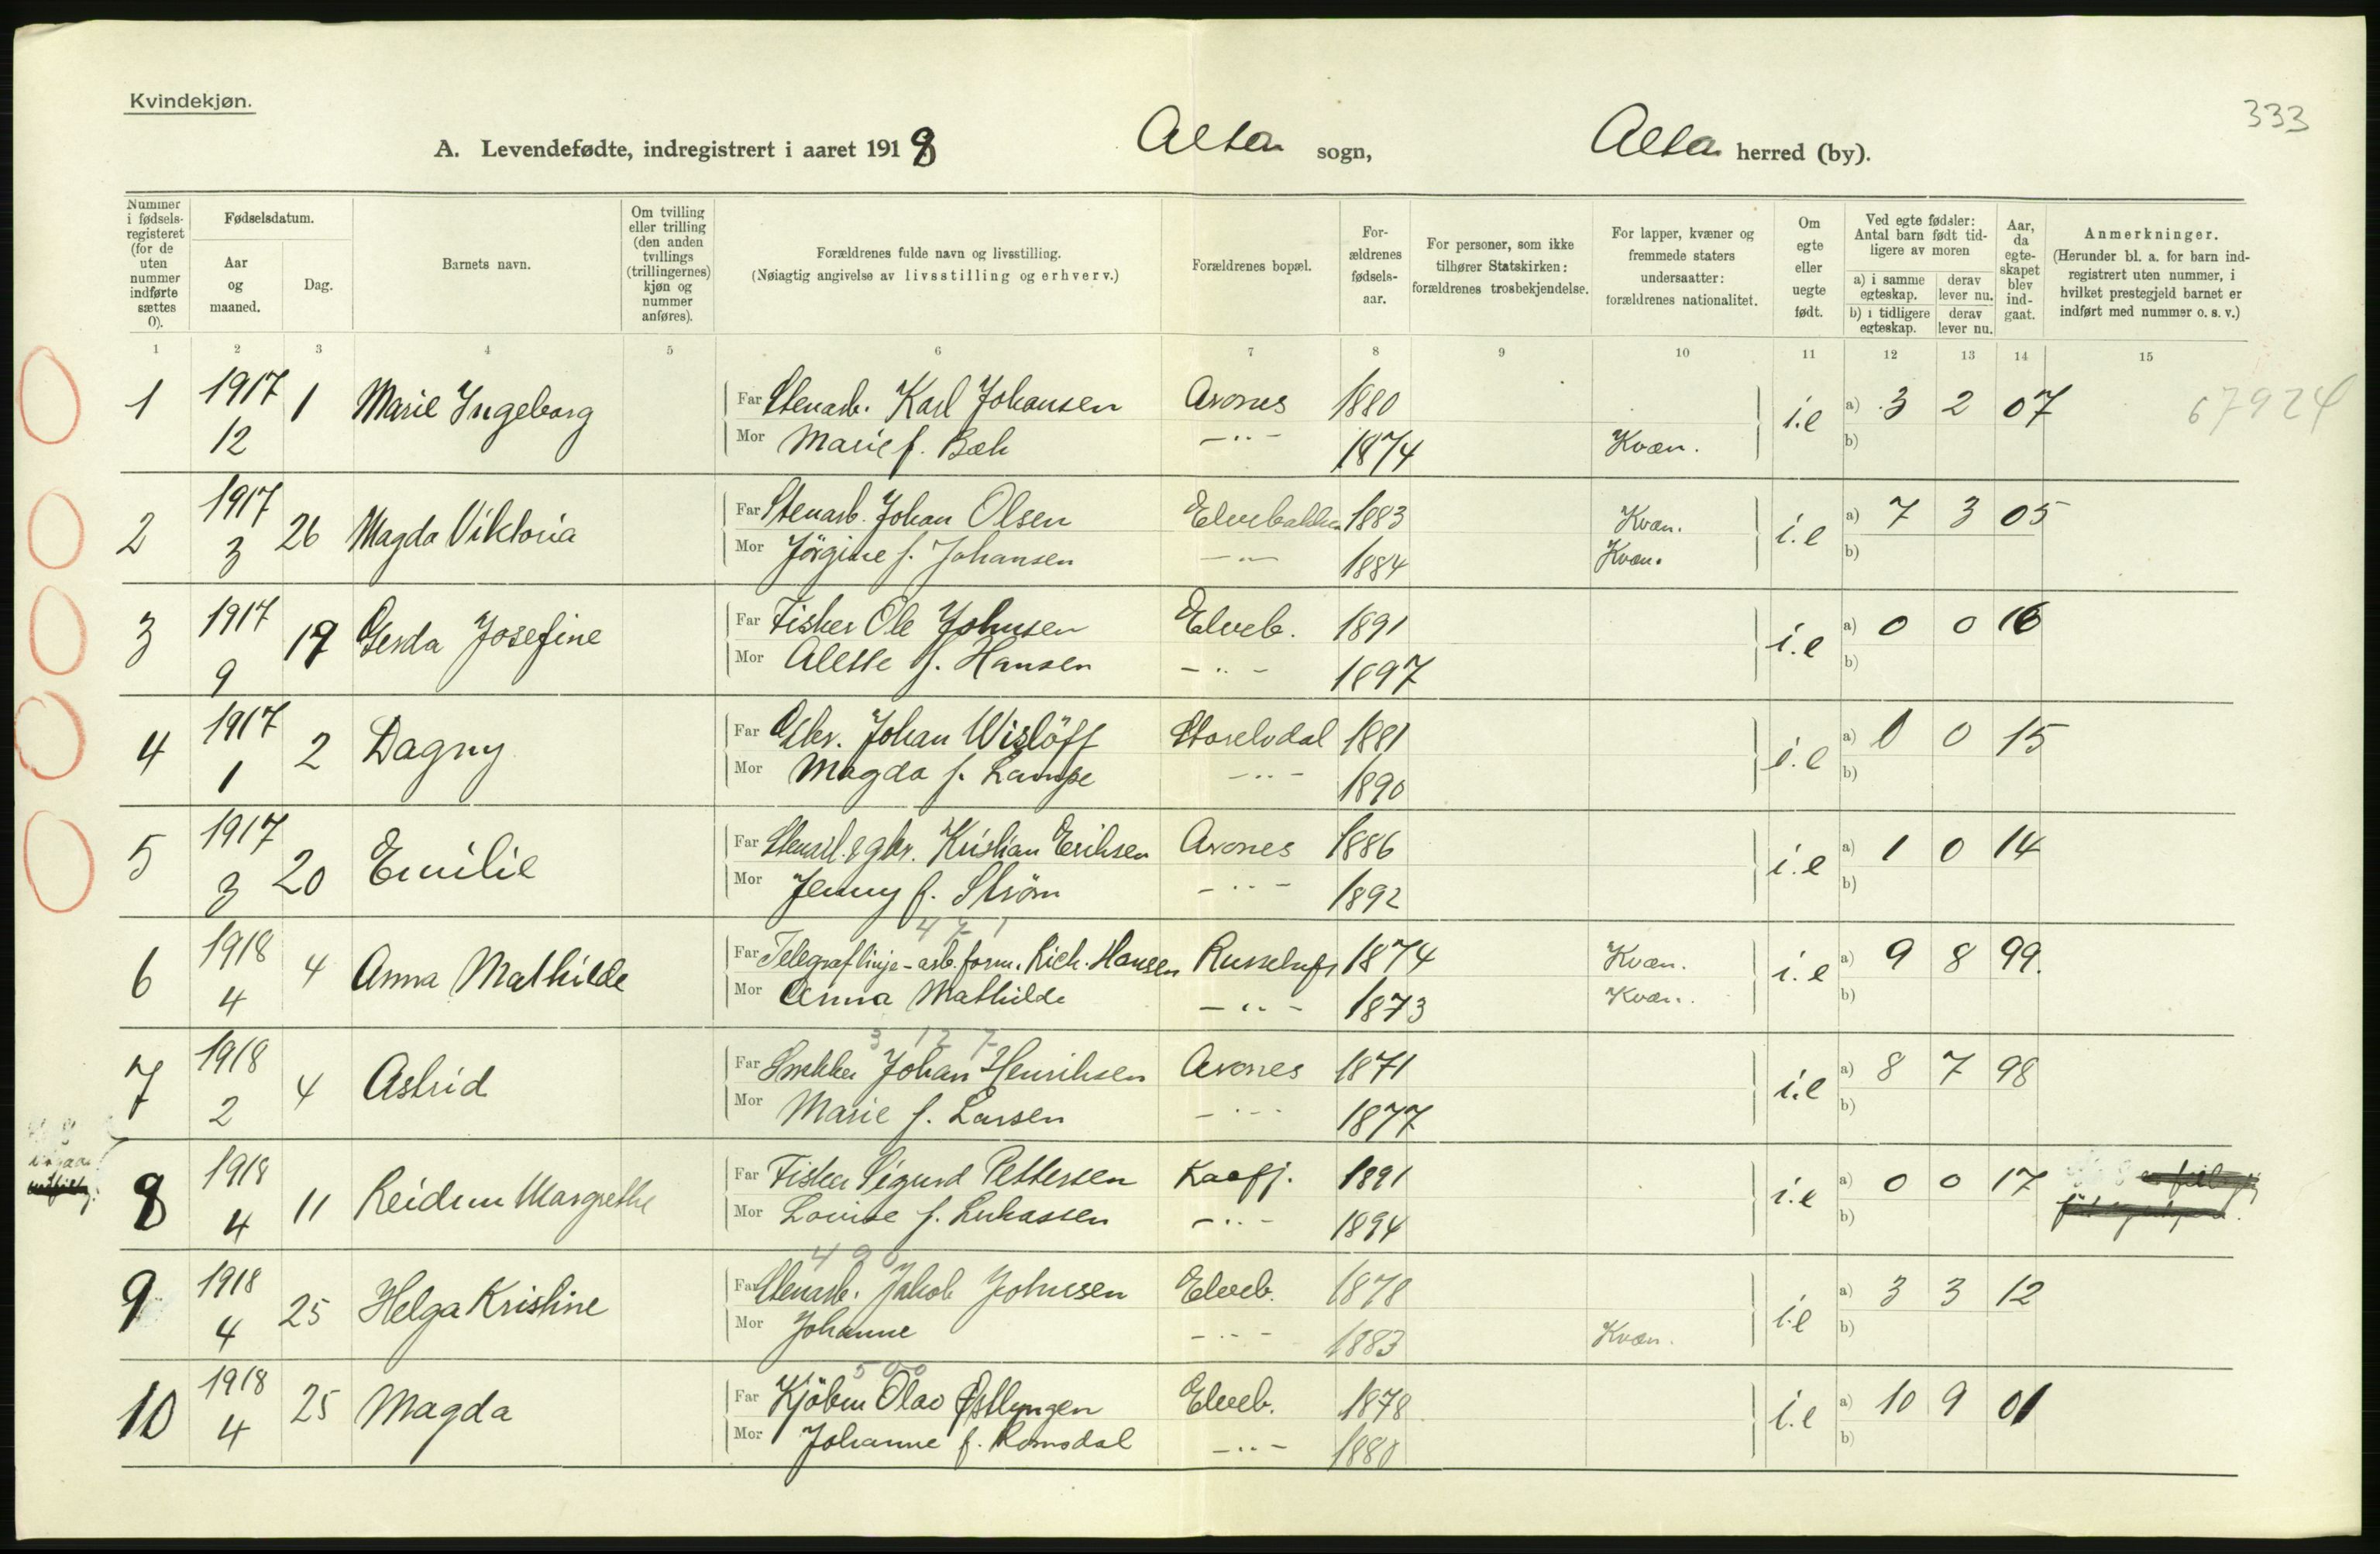 Kvindekjøn.
333
A. Levendefødte, indregistrert i aaret 1918 Alta sogn, Alta herred (by).
Nummer i fødsels-registeret (for de uten nummer indførte sættes 0).
Fødselsdatum.
Aar og maaned.
Dag.
Barnets navn.
Om tvilling eller trilling (den anden tvillings (trillingernes) kjøn og nummer anføres).
Forældrenes fulde navn og livsstilling.
(Nøiagtig angivelse av livsstilling og erhverv.)
Forældrenes bopæl.
For-ældrenes fødsels-aar.
For personer, som ikke tilhører Statskirken: forældrenes trosbekjendelse.
For lapper, kvæner og fremmede staters undersaatter: forældrenes nationalitet.
Om egte eller uegte født.
Ved egte fødsler: Antal barn født tid-ligere av moren
a) i samme egteskap.
derav lever nu.
b) i tidligere egteskap.
derav lever nu.
Aar, da egte-skapet blev ind-gaat.
Anmerkninger.
(Herunder bl. a. for barn ind-registrert uten nummer, i hvilket prestegjeld barnet er indført med nummer o. s. v.)
1 2 3 4 5 6 7 8 9 10 11 12 13 14 15
1 1917 1 Marie Ingeborg Far Stenarb. Karl Johansen Arones 1880 i.e a) 3 2 07 67924
12 Mor Marie f. Bæk — ·· — 1874 Kvæn. b)
2 1917 26 Magda Viktoria Far Stenarb. Johan Olsen Elvebakken 1883 Kvæn. i.e a) 7 3 05
3 Mor Jörgine f. Johansen — ·· — 1884 Kvæn. b)
3 1917 19 Gerda Josefine Far Fisker Ole Johnsen Elveb. 1891 i.e a) 0 0 16
9 Mor Alette f. Hansen — ·· — 1897 b)
4 1917 2 Dagny Far Gbr. Johan Wisløff Storelvdal 1881 i.e a) 1 0 15
1 Mor Magda f. Lampe — ·· — 1890 b)
5 1917 20 Emilie Far Stenarb. & gbr. Kristian Eriksen Arones 1886 i.e a) 1 0 14
3 Mor Jenny f. Strøm — ·· — 1892 b)
4 7 1
6 1918 4 Anna Mathilde Far Telegraflinje-arb.form. Rich. Hansen Russeluft 1874 Kvæn. i.e a) 9 8 99.
4 Mor Anna Mathilde — ·· — 1873 Kvæn. b)
3 12 7
7 1918 4 Astrid Far Snekker Johan Henriksen Arones 1871 i.e a) 8 7 98
2 Mor Marie f. Larsen — ·· — 1877 b)
8 1918 11 Reidun Margrethe Far Fisker Sigurd Pettersen Kaafj. 1891 i.e a) 0 0 17
4 Mor Lovise f. Lukassen — ·· — 1894 b)
4 9 0
9 1918 25 Helga Kristine Far Stenarb. Jakob Johnsen Elveb. 1878 i.e a) 3 3 12
4 Mor Johanne — ·· — 1883 Kvæn. b)
5 0 0
10 1918 25 Magda Far Kjöbm Olav Østlyngen Elveb. 1878 i.e a) 10 9 01
4 Mor Johanne f. Romsdal — ·· — 1880 b)